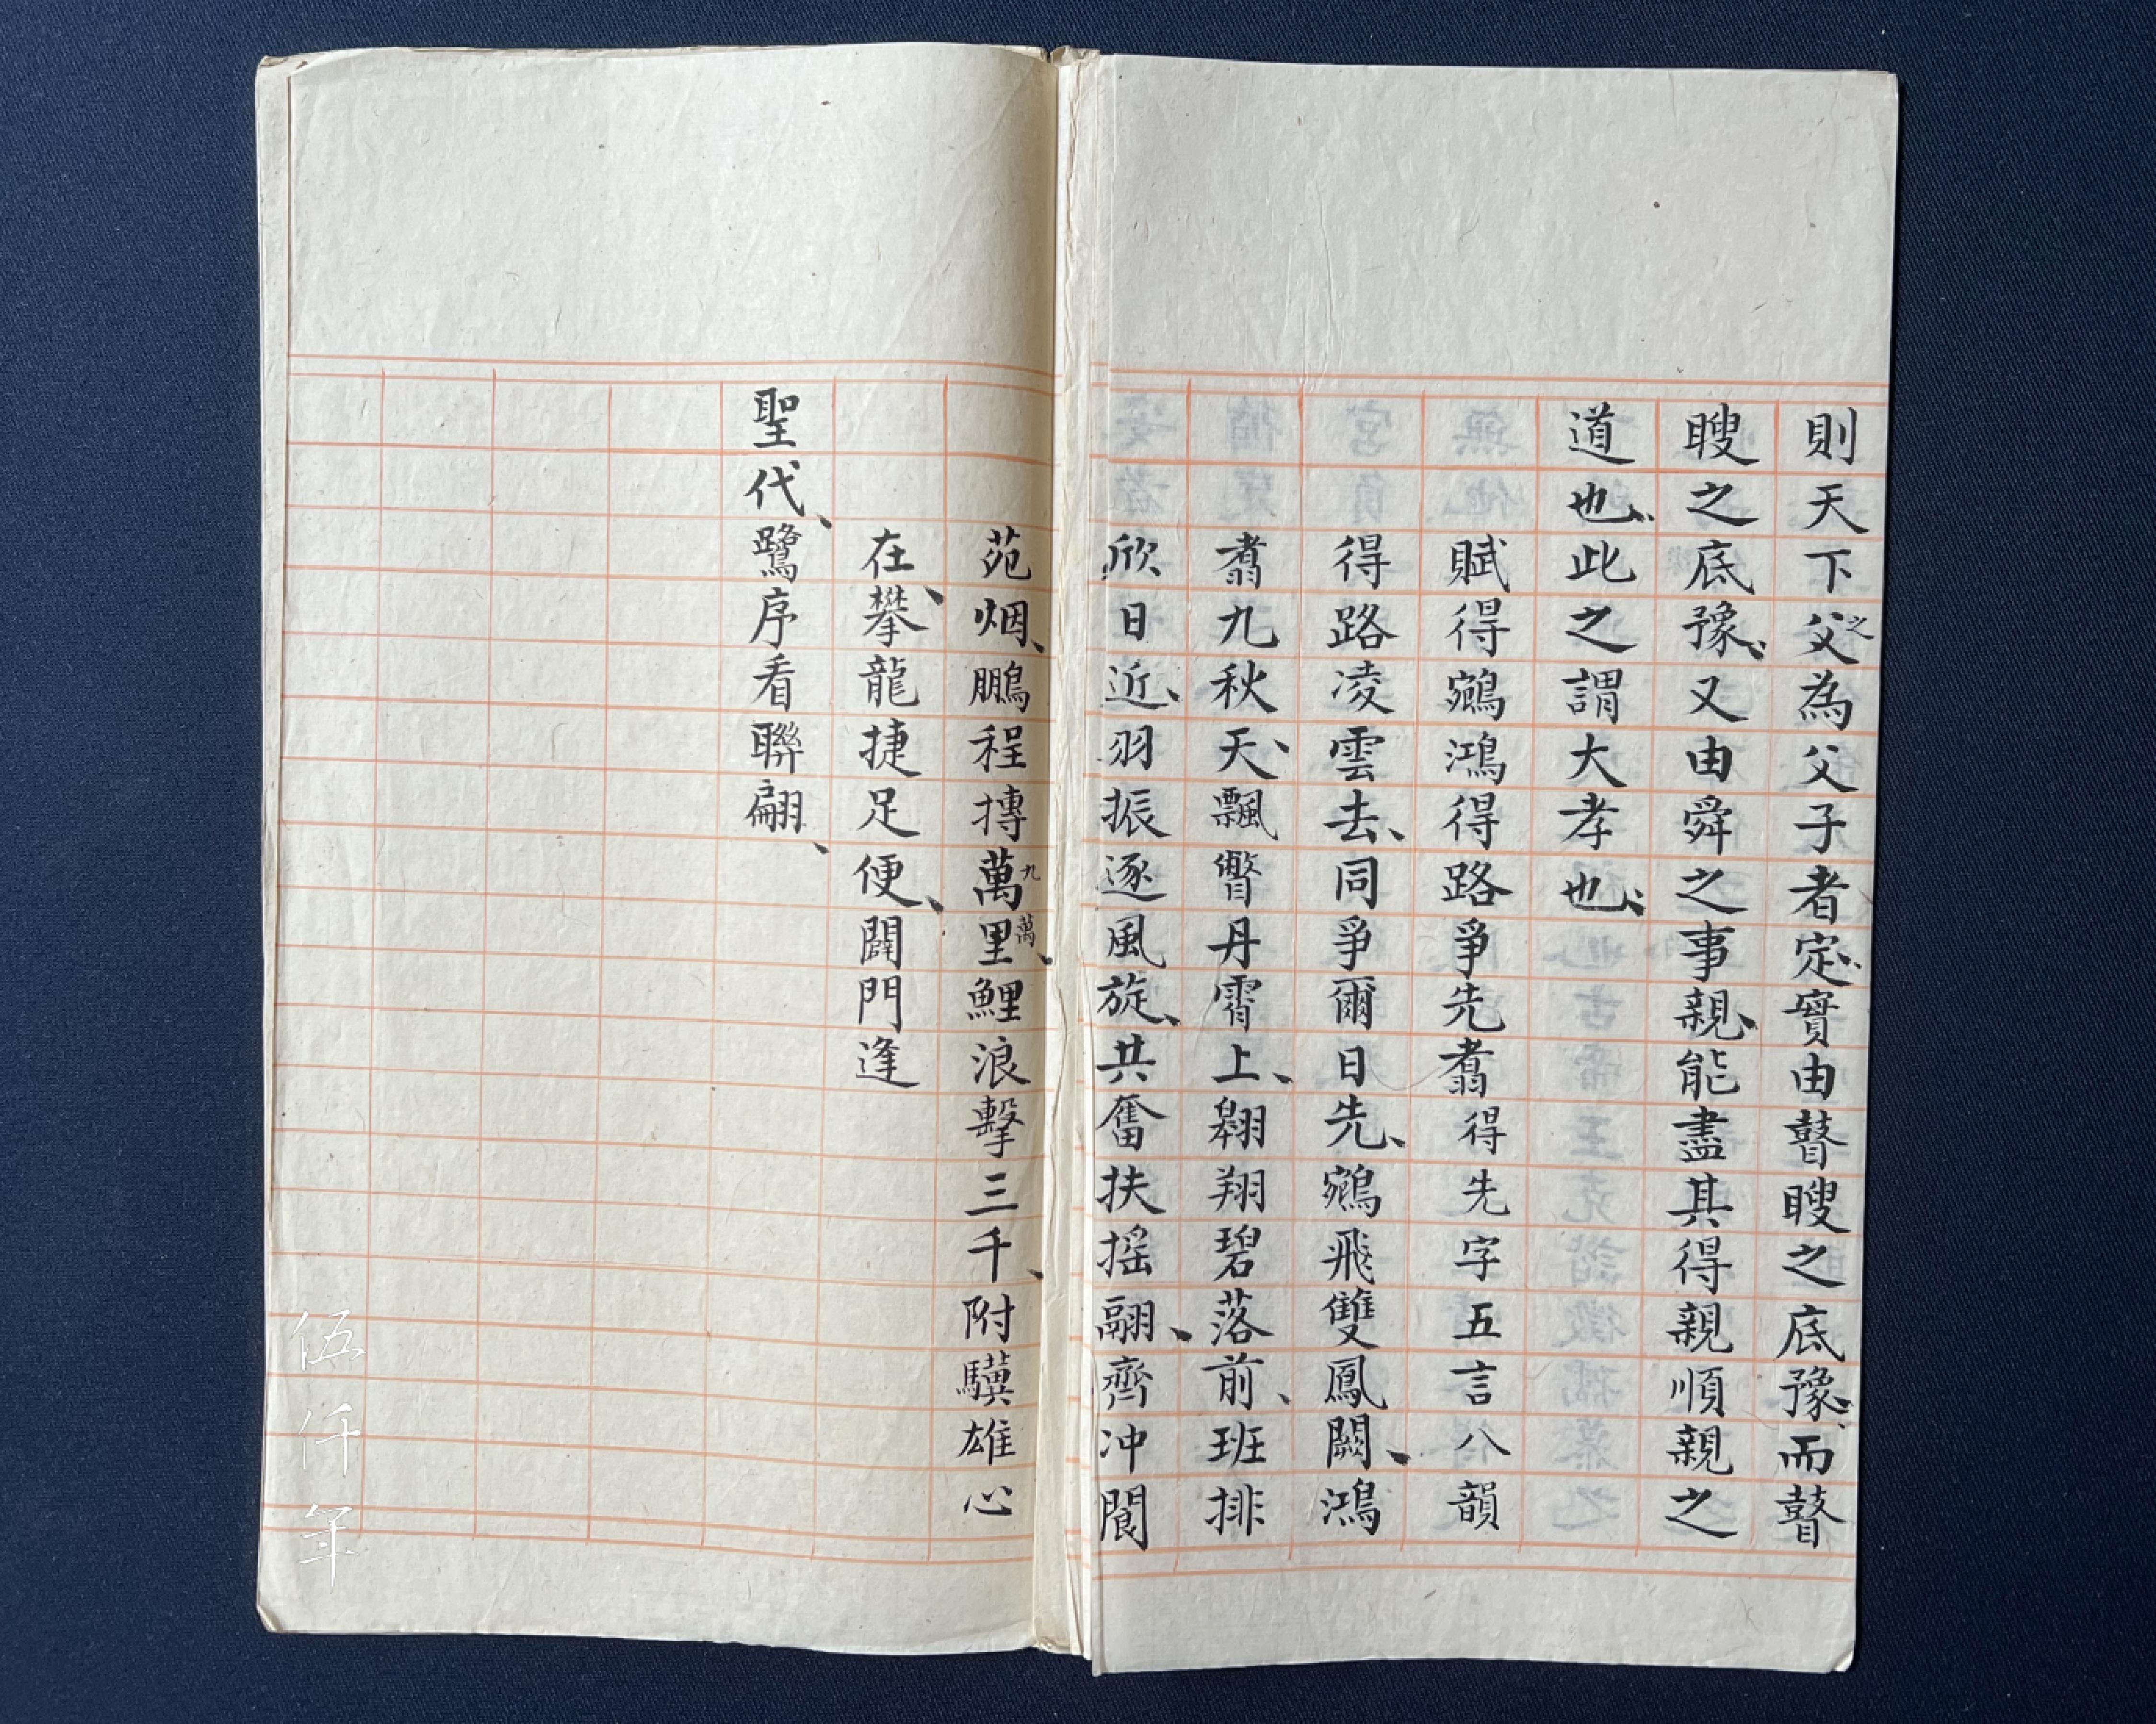 則天下父之為父子者定、實由瞽瞍之底豫、而瞽
瞍之底豫、又由舜之事親、能盡其得親順親之
道也、此之謂大孝也、
賦得鵷鴻得路爭先翥得先字五言八韻
得路凌雲去、同爭爾日先、鵷飛雙鳳闕、鴻
翥九秋天、飄瞥丹霄上、翱翔碧落前、班排
欣日近、羽振逐風旋、共奮扶搖翮、齊冲閬
苑烟、鵬程摶萬九里萬、鯉浪擊三千、附驥雄心
在、攀龍捷足便、闢門逢
聖代、鷺序看聯翩、
伍仟年